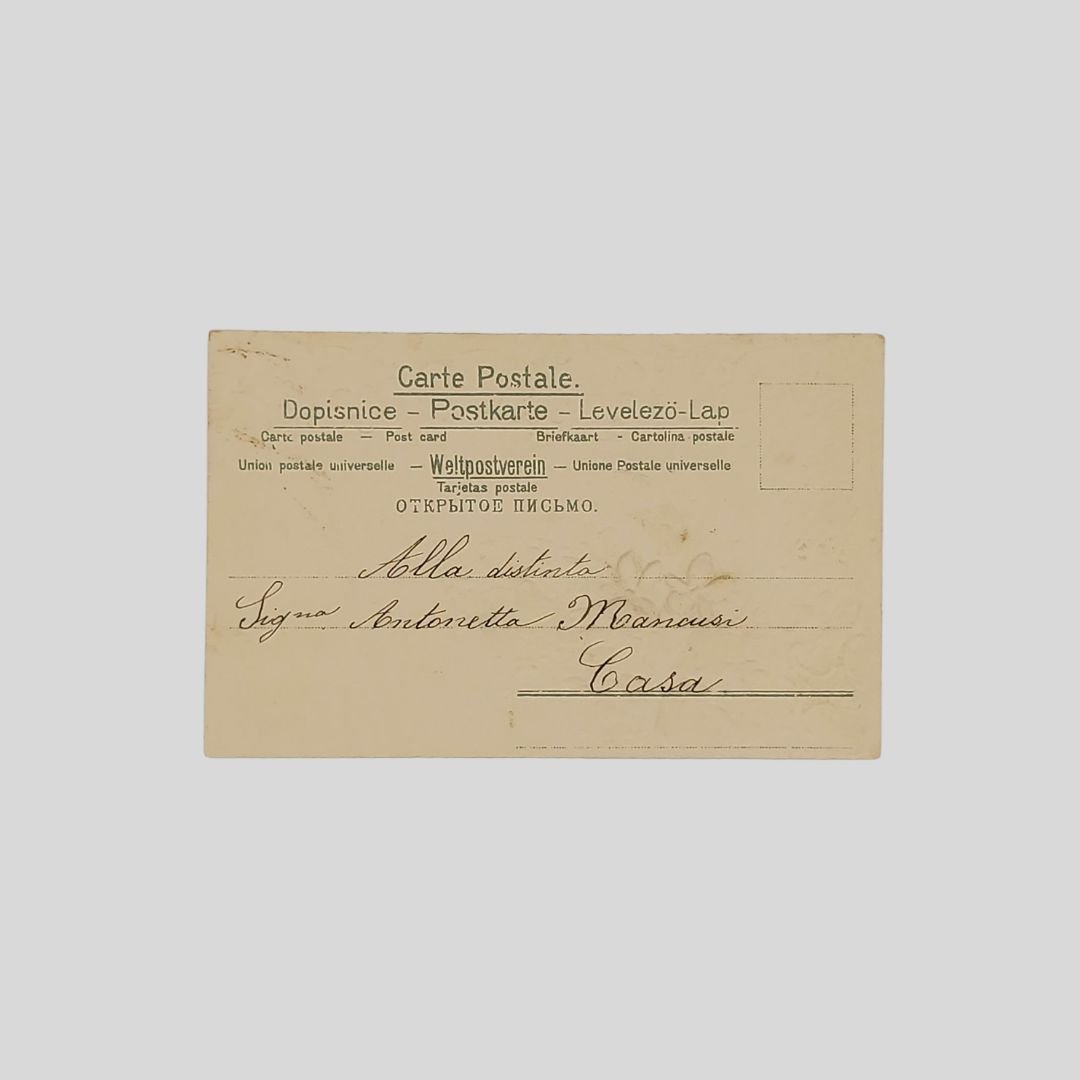 Carte Postale.
Dopisnice – Postkarte – Levelezö-Lap
Carte postale — Post card Briefkaart - Cartolina postale
Union postale universelle — Weltpostverein — Unione Postale universelle
Tarjetas postale
ОТКРЫТОЕ ПИСЬМО.
Alla distinta
Sigᵐᵃ Antonetta Mancusi
Casa